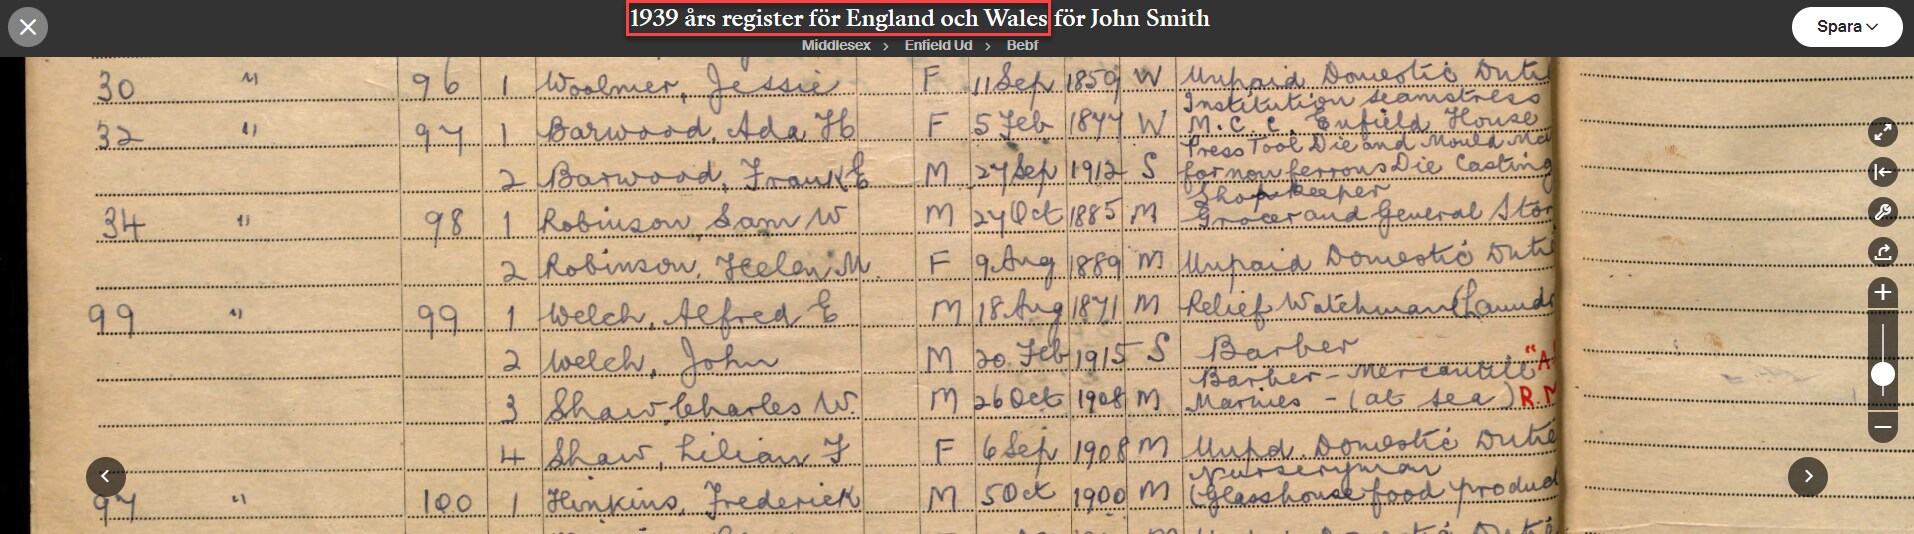 1939 års register för England och Wales för John Smith
Spara
Middlesex > Enfield Ud > Bebf
30 " 96 1 Woolmer, Jessie F 11 Sep 1859 W Unpaid Domestic Duti
Institution seamstress
32 " 97 1 Barwood, Ada H F 5 Feb 1877 W M.C.C. Enfield House
Press Tool Die and Mould Ma
2 Barwood, Frank E M 27 Sep 1912 S for non ferrous Die Casting
Shopkeeper
34 " 98 1 Robinson, Sam W M 27 Oct 1885 M Grocer and General Stor
2 Robinson, Helen M. F 9 Aug 1889 M Unpaid Domestic Duti
99 " 99 1 Welch, Alfred E M 18 Aug 1871 M Relief Watchman (Laund
2 Welch, John M 20 Feb 1915 S Barber
Barber - Mercantile "A
3 Shaw, Charles W. M 26 Oct 1908 M Marines - (at sea) R.M
4 Shaw, Lilian F F 6 Sep 1908 M Unpd. Domestic Dutie
Nurseryman
97 " 100 1 Hinkins, Frederick M 5 Oct 1900 M (Glasshouse food produc